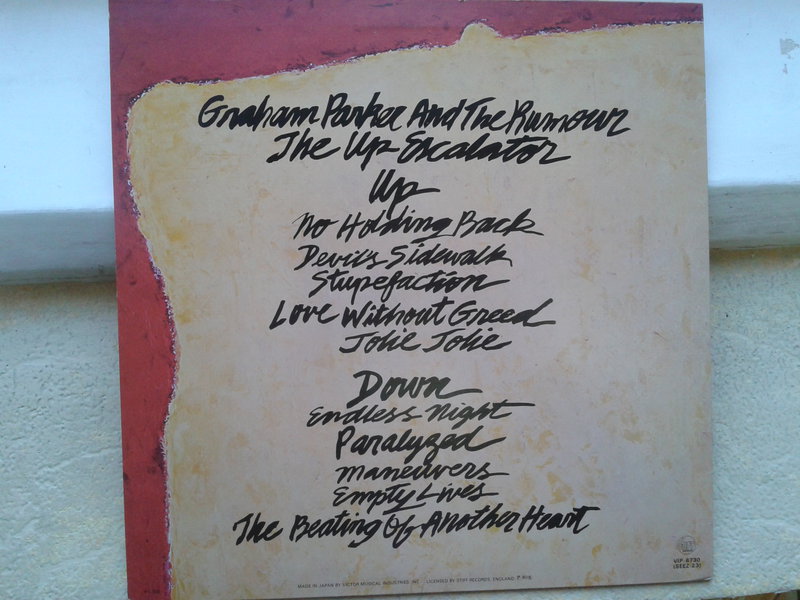 Graham Parker And The Rumour
The Up Escalator
Up
No Holding Back
Devils Sidewalk
Stupefaction
Love Without Greed
Jolie Jolie
Down
Endless Night
Paralyzed
Maneuvers
Empty Lives
The Beating Of Another Heart
MADE IN JAPAN BY VICTOR MUSICAL INDUSTRIES, INC. LICENSED BY STIFF RECORDS, ENGLAND
VIP-6730
(SEEZ 23)